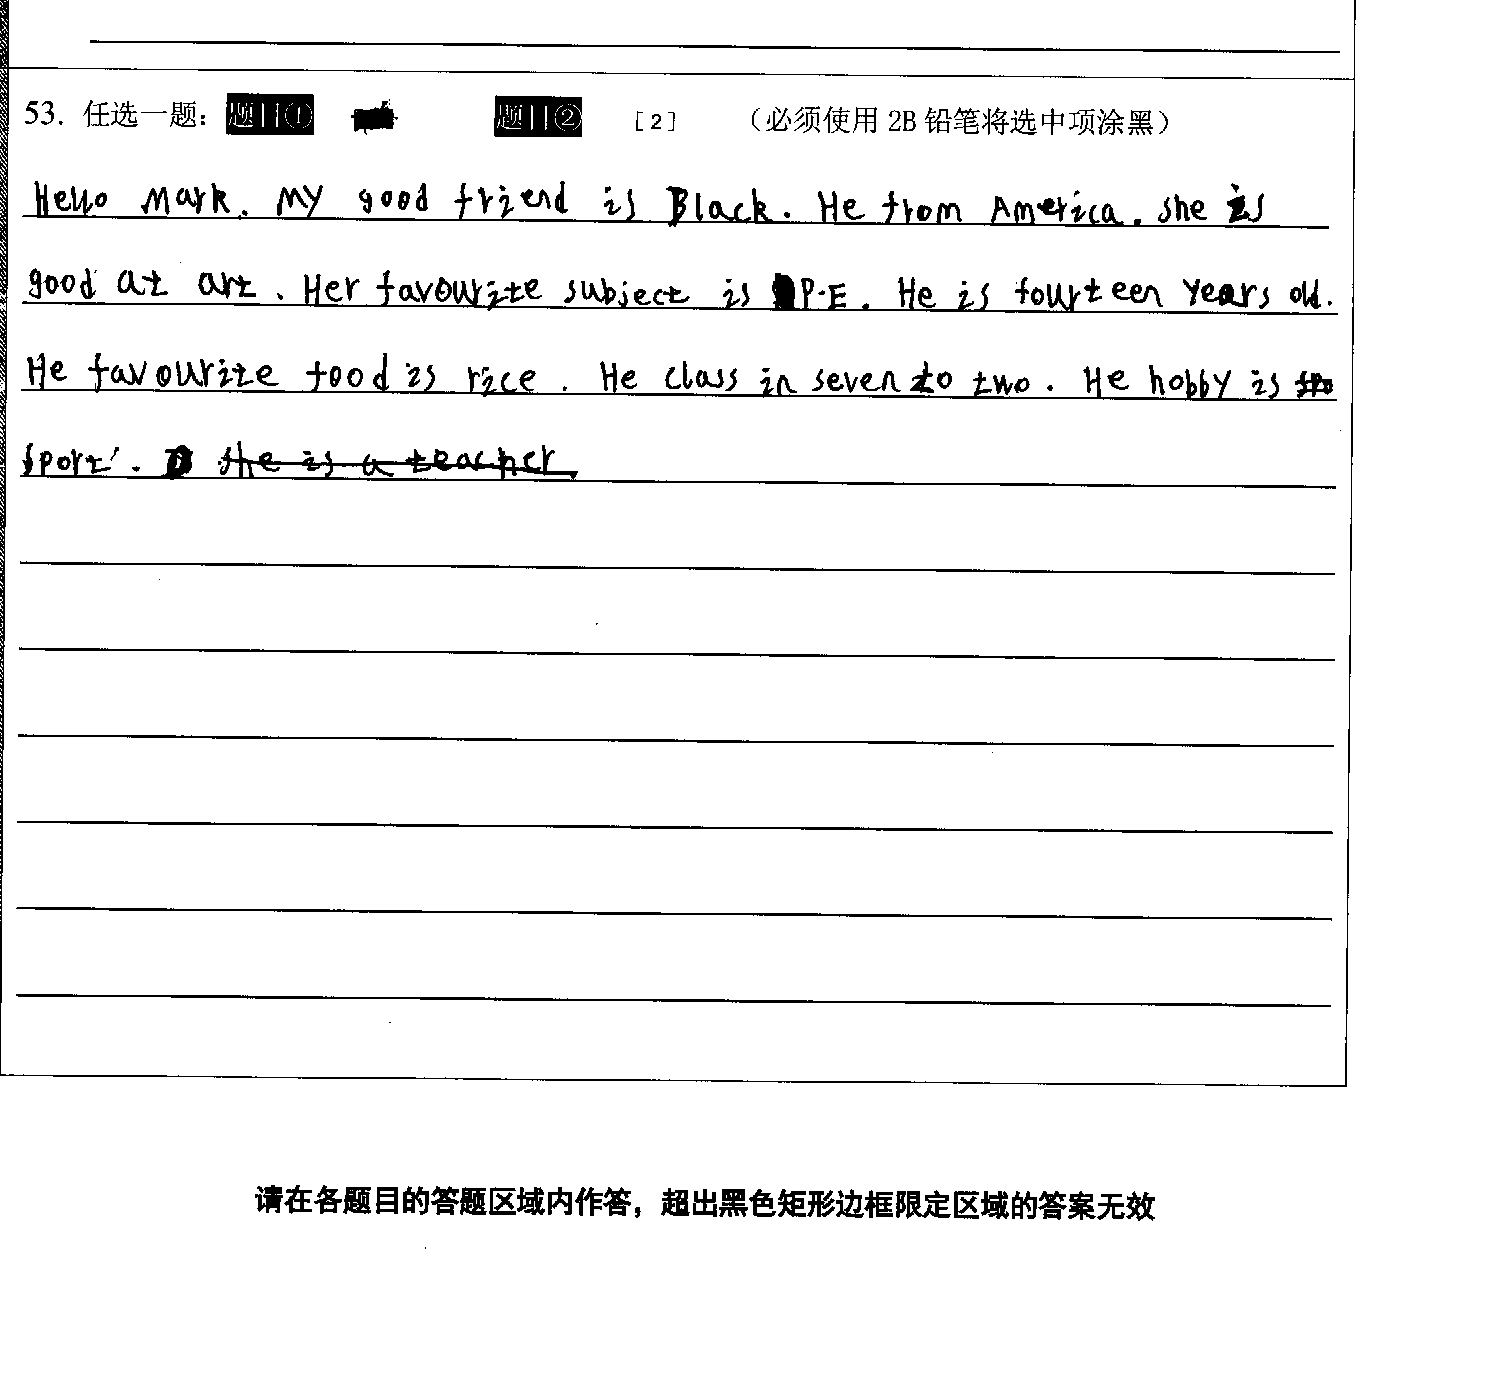 53. 任选一题： 题目① 题目② [2] （必须使用 2B 铅笔将选中项涂黑）
Hello Mark. My good friend is Black. He from America. she is
good at art. Her favourite subject is P.E. He is fourteen years old.
He favourite food is rice. He class in seven to two. He hobby is
sport. she is a teacher
请在各题目的答题区域内作答，超出黑色矩形边框限定区域的答案无效